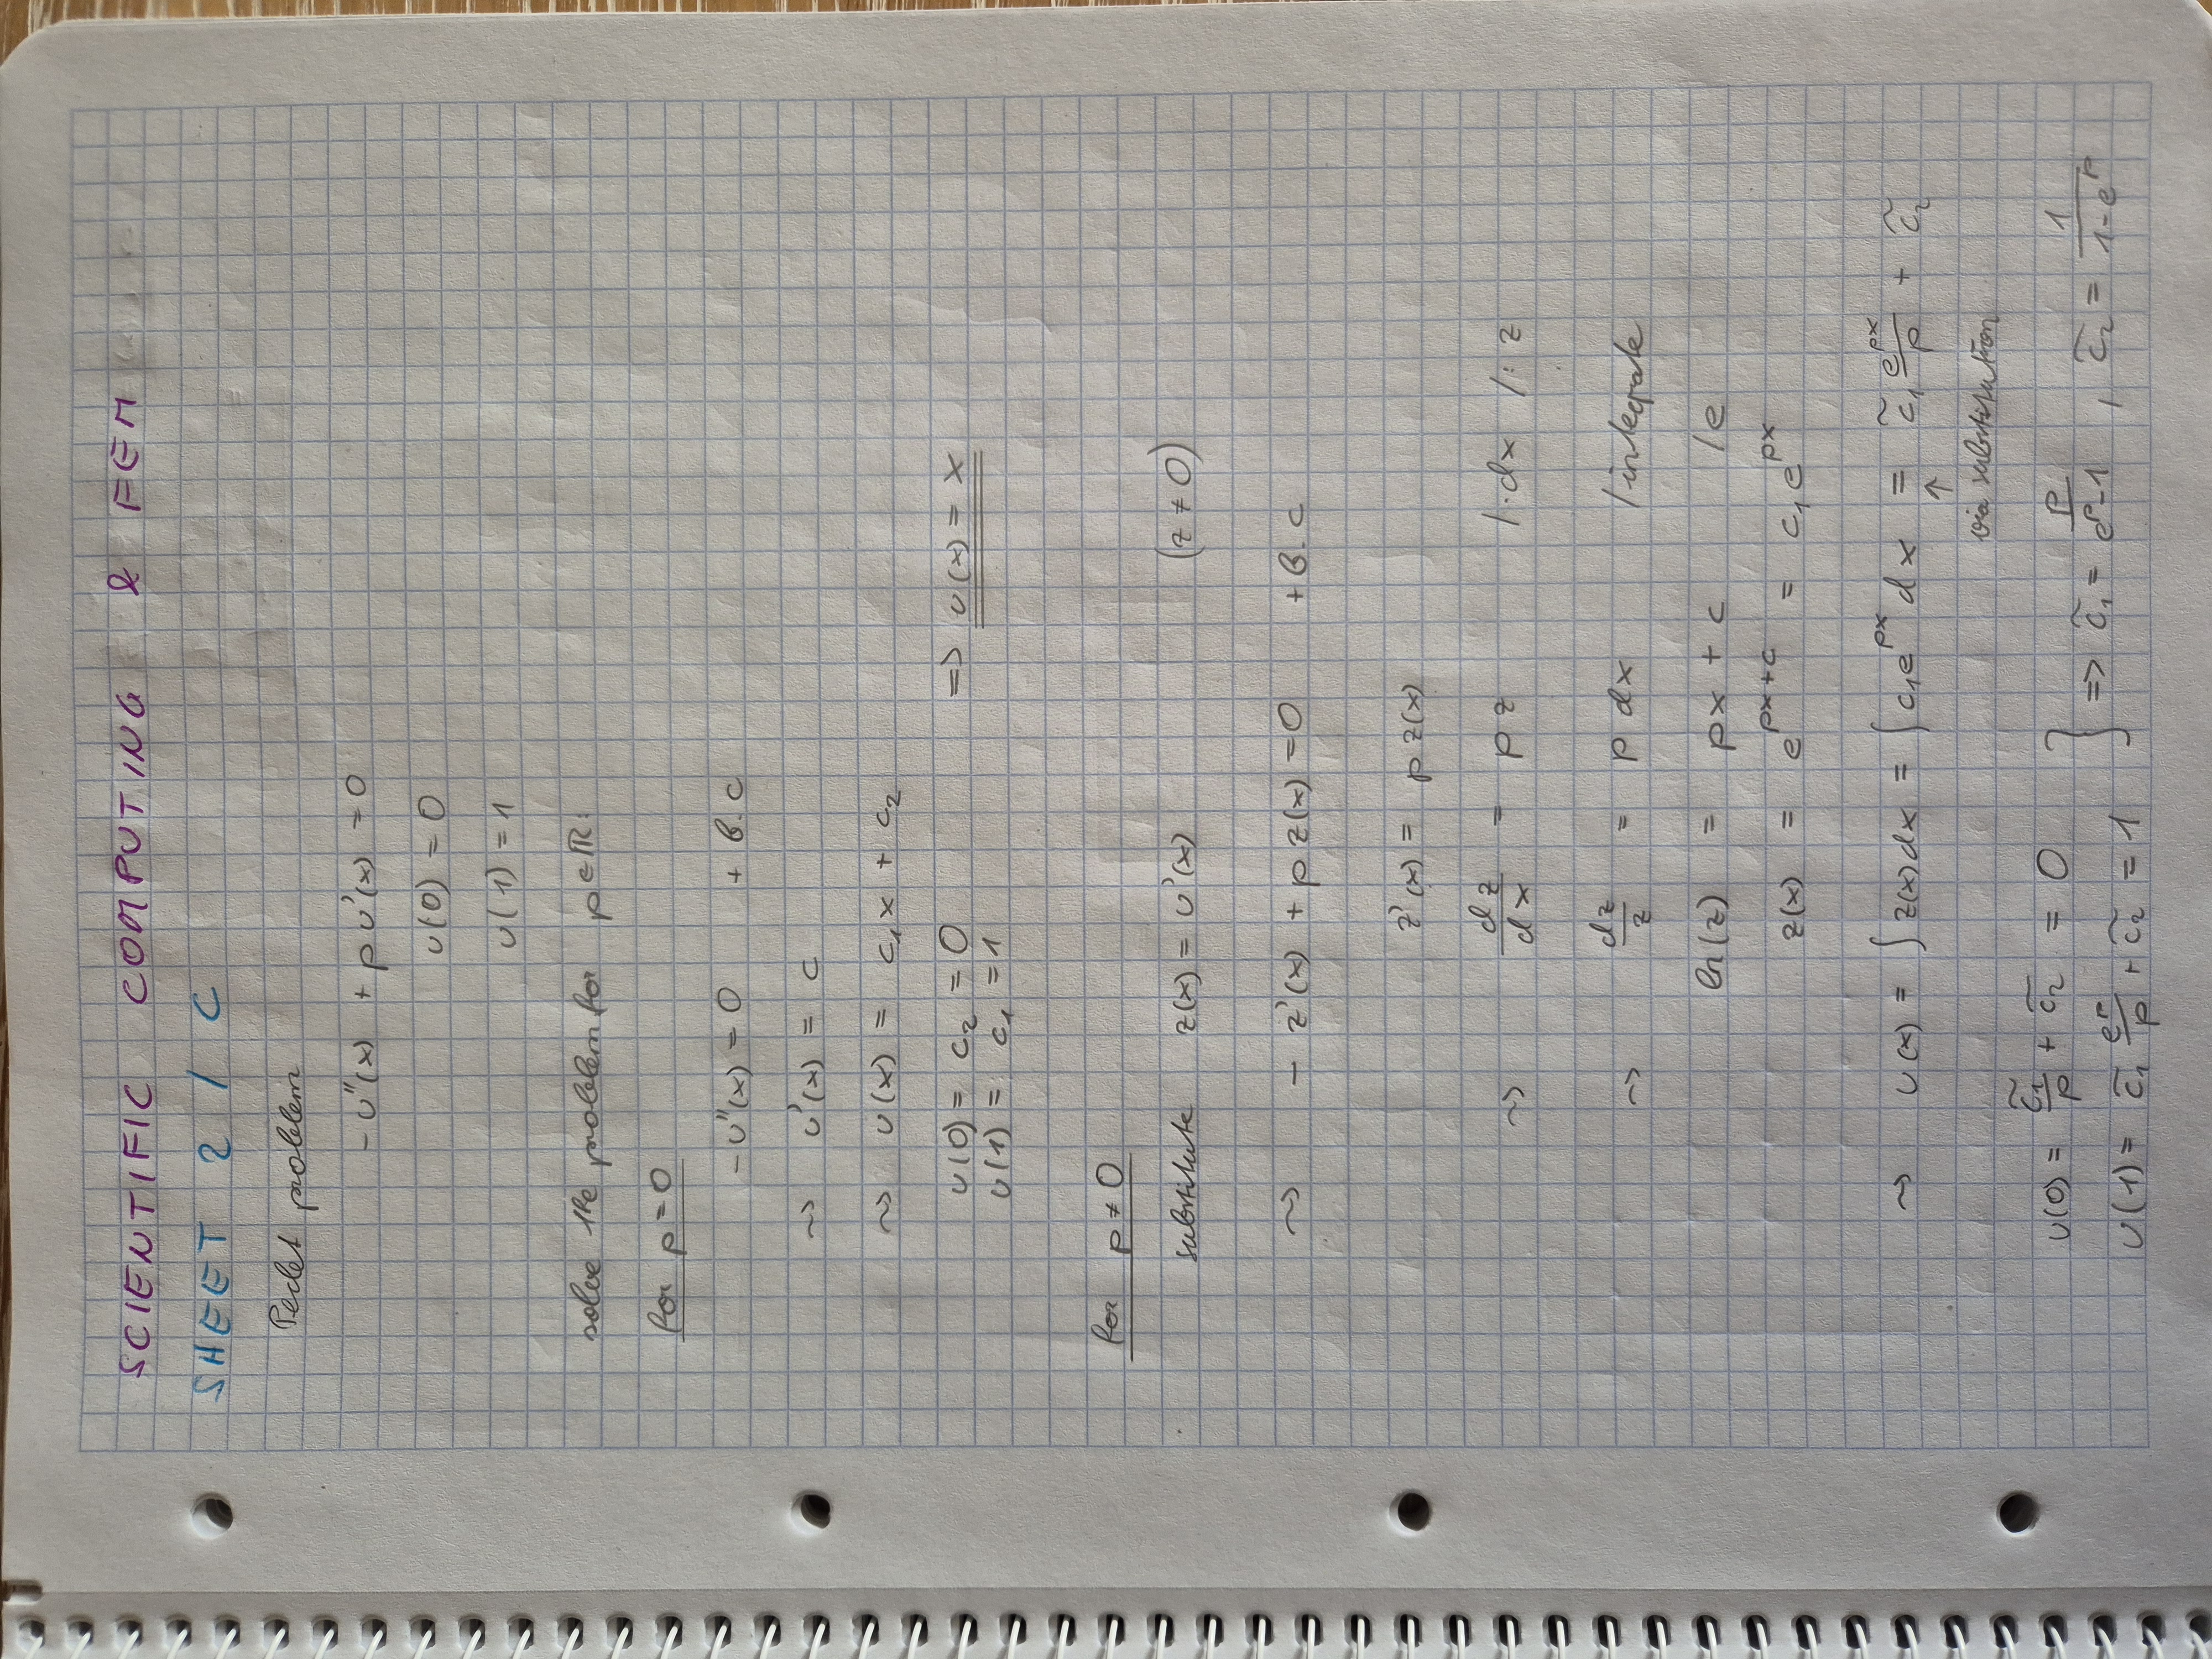 SCIENTIFIC COMPUTING & FEM
SHEET 2 / C
Peclet problem
-u''(x) + p u'(x) = 0
u(0) = 0
u(1) = 1
solve the problem for p ∈ ℝ:
for p = 0
-u''(x) = 0 + B.C
~> u'(x) = c
~> u(x) = c₁x + c₂
u(0) = c₂ = 0
u(1) = c₁ = 1 => u(x) = x
for p ≠ 0
substitute z(x) = u'(x) (z ≠ 0)
~> - z'(x) + p z(x) = 0 + B.C
z'(x) = p z(x)
~> dz/dx = p z |·dx |: z
~> dz/z = p dx | integrate
ln(z) = px + c | e
z(x) = e^(px+c) = c₁ e^(px)
~> u(x) = ∫ z(x) dx = ∫ c₁e^(px) dx = c̃₁ e^(px)/p + c̃₂
↑ via substitution
u(0) = c̃₁/p + c̃₂ = 0
u(1) = c̃₁ e^p/p + c̃₂ = 1 } => c̃₁ = p/(e^p-1) , c̃₂ = 1/(1-e^p)